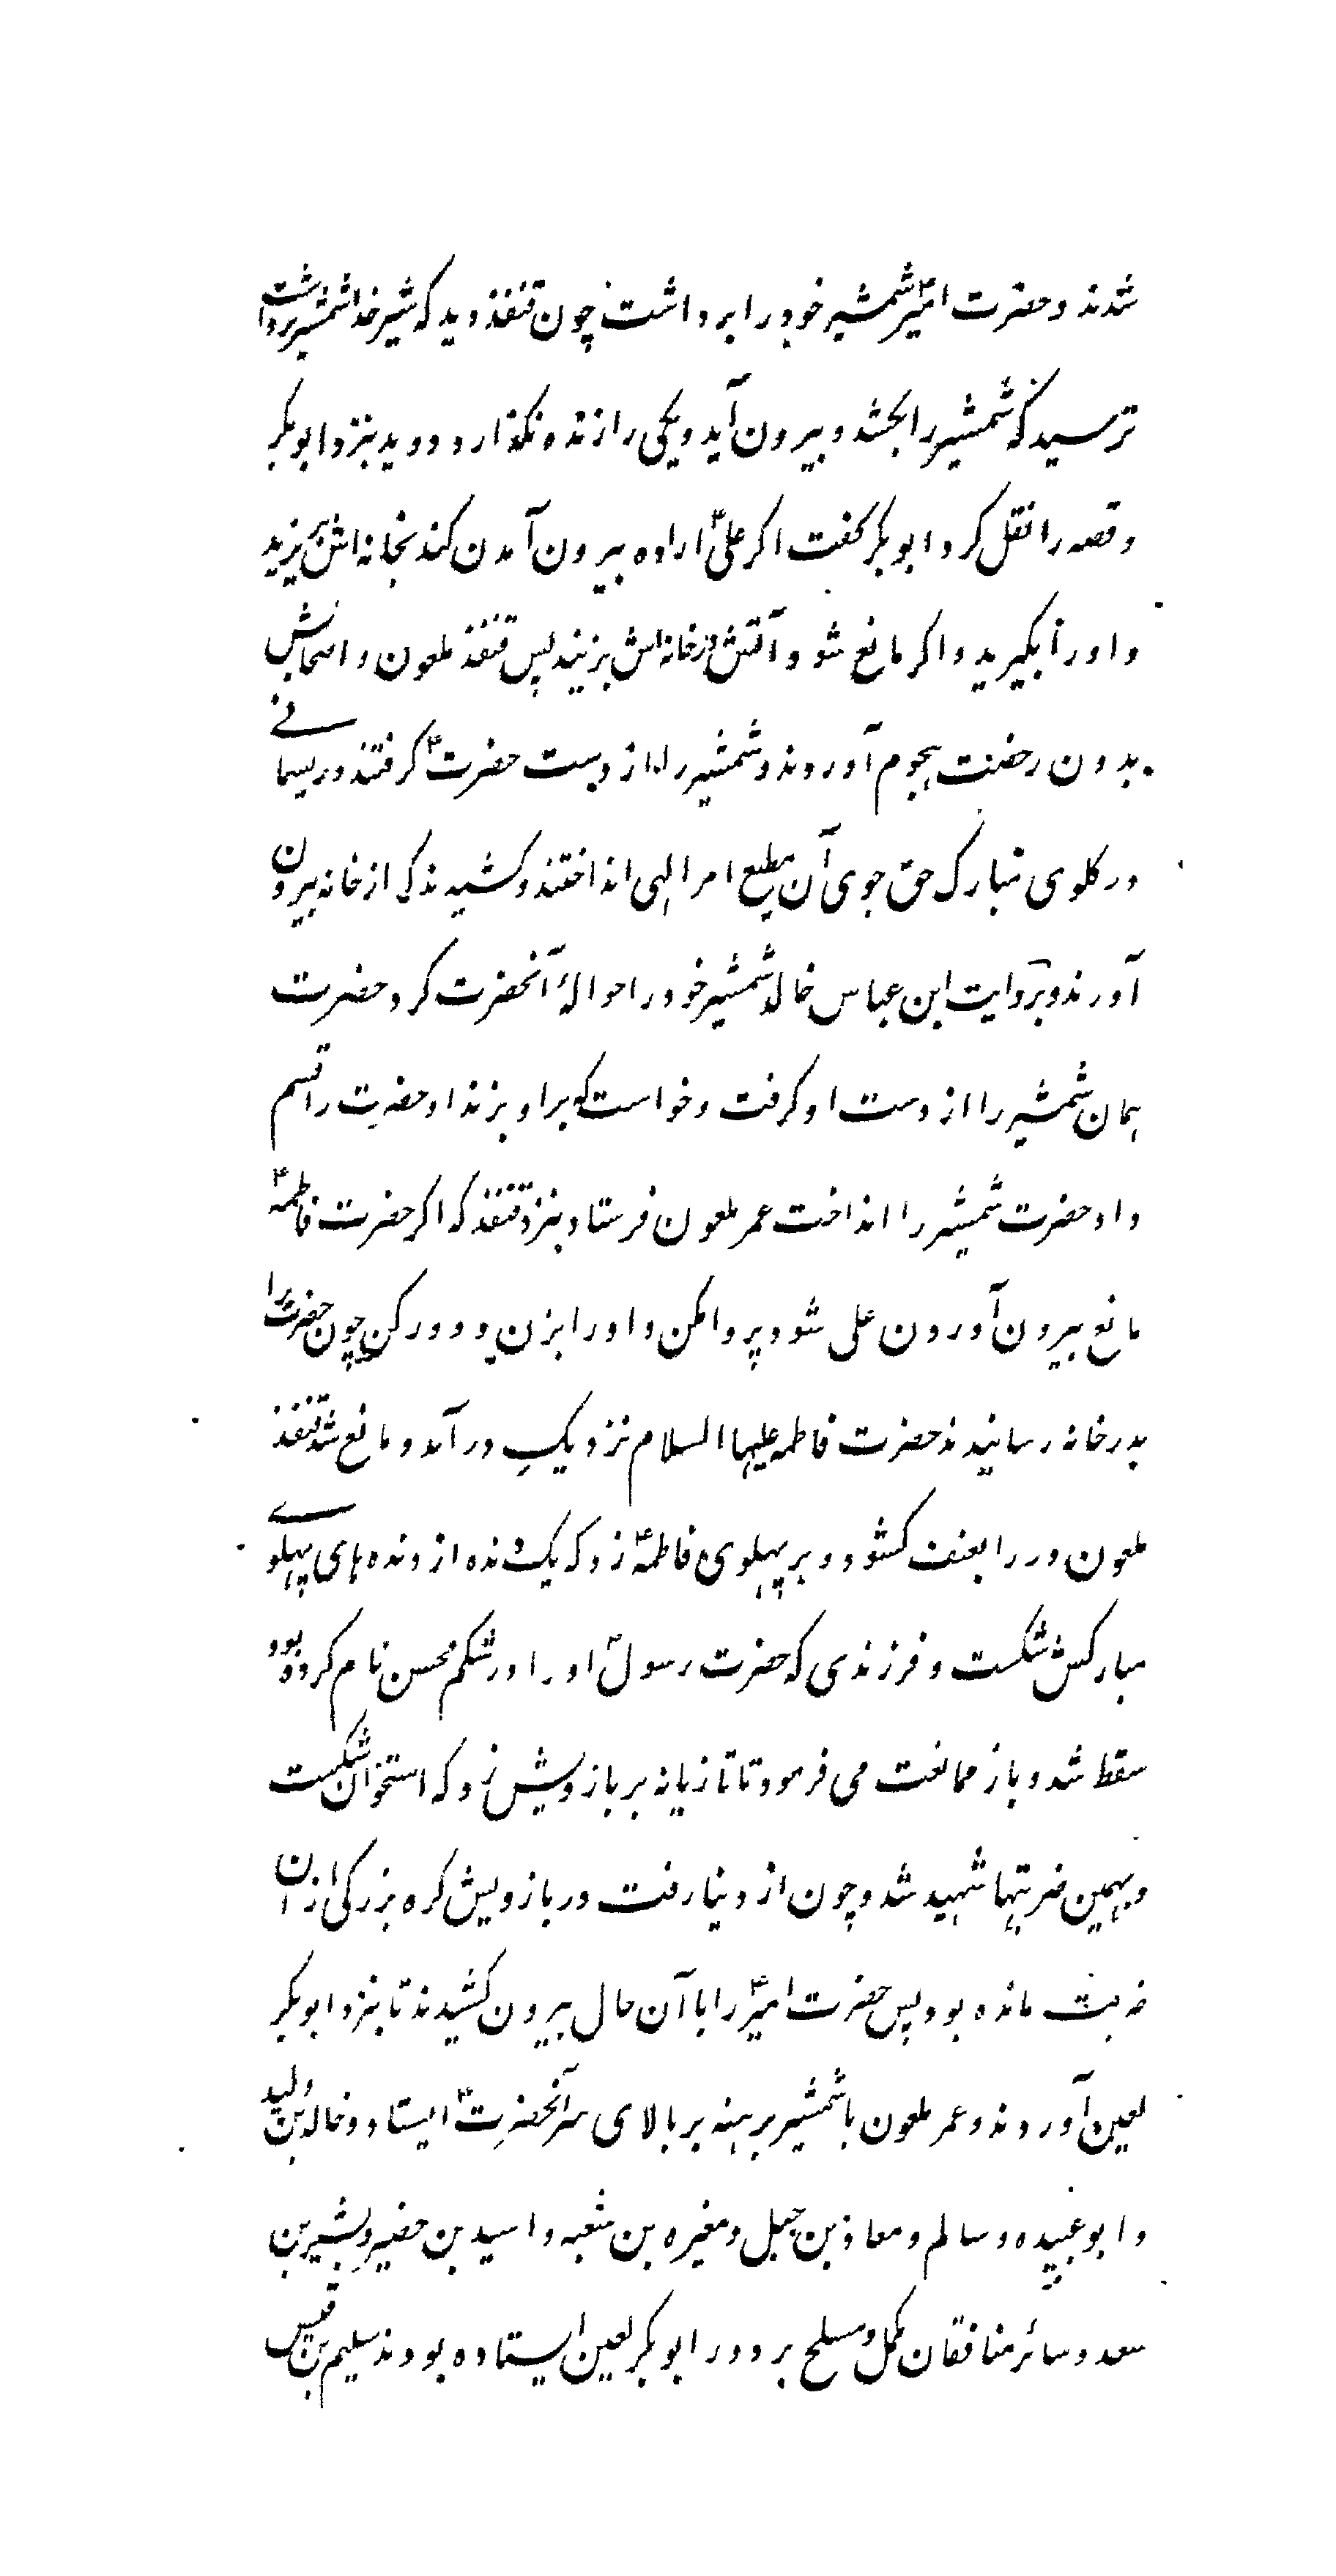 شدند و حضرت امیرؑ شمشیر خود را برداشت چون قنفذ دید که شیر خدا شمشیر برداشت
ترسید که شمشیر را بکشد و بیرون آید و یکی را زنده نگذارد دوید بنزد ابوبکر
و قصه را نقل کرد ابوبکر گفت اگر علیؑ اراده بیرون آمدن کند بخانه اش بریزید
و او را بگیرید و اگر مانع شود آتش در خانه اش بزنید پس قنفذ ملعون و اصحابش
بدون رخصت هجوم آوردند و شمشیر را از دست حضرتؑ گرفتند و ریسمانے
در گلوی مبارک حق جوی آن مطیع امر الهی انداختند و کشیدند که از خانه بیرون
آورند و بروایت ابن عباس خالد شمشیر خود را حوالۀ آنحضرت کرد حضرت
همان شمشیر را از دست او گرفت و خواست که بر او بزند او حضرت را قسم
داد حضرت شمشیر را انداخت عمر ملعون فرستاد بنزد قنفذ که اگر حضرت فاطمهؑ
مانع بیرون آوردن علی شود پروا مکن و او را بزن و دور کن چون حضرتؑ را
بدر خانه رسانیدند حضرت فاطمه علیها السلام نزدیک در آمد و مانع شد قنفذ
ملعون در را بعنف کشود و بر پهلوی فاطمهؑ زد که یک دنده از دنده های پهلوے
مبارکش شکست و فرزندی که حضرت رسولؐ او را در شکم محسن نام کرده بود
سقط شد و باز ممانعت می فرمود تا تازیانه بر بازویش زد که استخوان شکست
و بهمین ضربتها شهید شد و چون از دنیا رفت در بازویش گره بزرگی از ان
ضربت مانده بود پس حضرت امیرؑ را با آن حال بیرون کشیدند تا بنزد ابوبکر
لعین آوردند و عمر ملعون با شمشیر برهنه بر بالای سر آنحضرتؑ ایستاد و خالد بن ولید
و ابوعبیده و سالم و معاذ بن جبل و مغیره بن شعبه و اسید بن حضیر و بشیر بن
سعد و سائر منافقان مکمل و مسلح بر دور ابوبکر لعین ایستاده بودند سلیم بن قیس